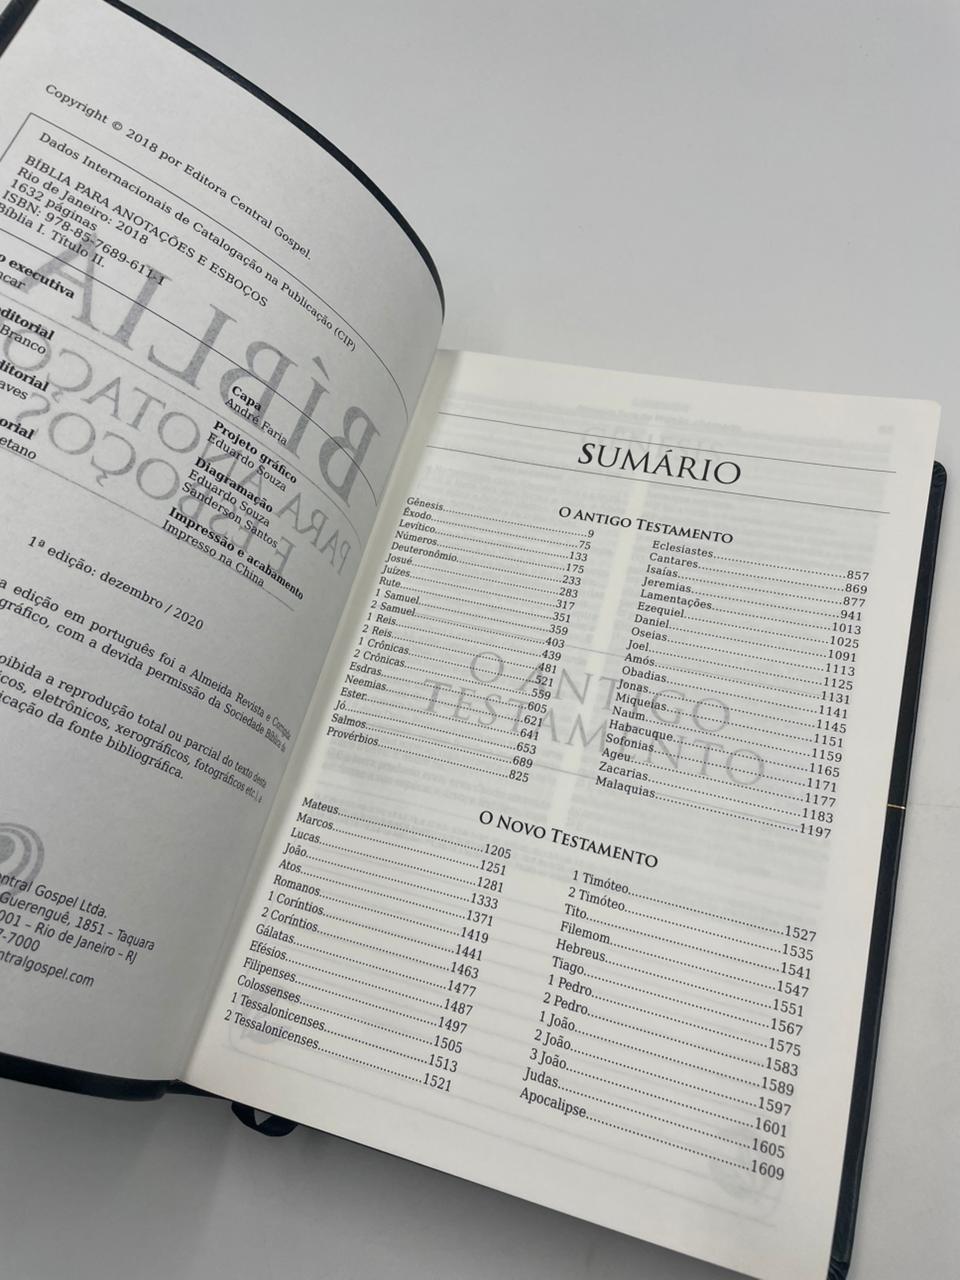 Copyright © 2018 por Editora Central Gospel.
Dados Internacionais de Catalogação na Publicação (CIP)
BÍBLIA PARA ANOTAÇÕES E ESBOÇOS
Rio de Janeiro: 2018
1632 páginas
ISBN: 978-85-7689-611-1
Bíblia I. Título II.
executiva
editorial
Branco
editorial
aves
etano
Capa
André Faria
Projeto gráfico
Eduardo Souza
Diagramação
Eduardo Souza
Sanderson Santos
Impressão e acabamento
Impresso na China
1ª edição: dezembro / 2020
a edição em português foi a Almeida Revista e Corrigida
gráfico, com a devida permissão da Sociedade Bíblica do
oibida a reprodução total ou parcial do texto desta
icos, eletrônicos, xerográficos, fotográficos etc.), a
icação da fonte bibliográfica.
entral Gospel Ltda.
Guerenguê, 1851 – Taquara
001 – Rio de Janeiro – RJ
7-7000
ntralgospel.com
SUMÁRIO
O ANTIGO TESTAMENTO
Gênesis 9
Êxodo 75
Levítico 133
Números 175
Deuteronômio 233
Josué 283
Juízes 317
Rute 351
1 Samuel 359
2 Samuel 403
1 Reis 439
2 Reis 481
1 Crónicas 521
2 Crônicas 559
Esdras 605
Neemias 621
Ester 641
Jó 653
Salmos 689
Provérbios 825
Eclesiastes 857
Cantares 869
Isaías 877
Jeremias 941
Lamentações 1013
Ezequiel 1025
Daniel 1091
Oseias 1113
Joel 1125
Amós 1131
Obadias 1141
Jonas 1145
Miqueias 1151
Naum 1159
Habacuque 1165
Sofonias 1171
Ageu 1177
Zacarias 1183
Malaquias 1197
O NOVO TESTAMENTO
Mateus 1205
Marcos 1251
Lucas 1281
João 1333
Atos 1371
Romanos 1419
1 Coríntios 1441
2 Coríntios 1463
Gálatas 1477
Efésios 1487
Filipenses 1497
Colossenses 1505
1 Tessalonicenses 1513
2 Tessalonicenses 1521
1 Timóteo 1527
2 Timóteo 1535
Tito 1541
Filemom 1547
Hebreus 1551
Tiago 1567
1 Pedro 1575
2 Pedro 1583
1 João 1589
2 João 1597
3 João 1601
Judas 1605
Apocalipse 1609